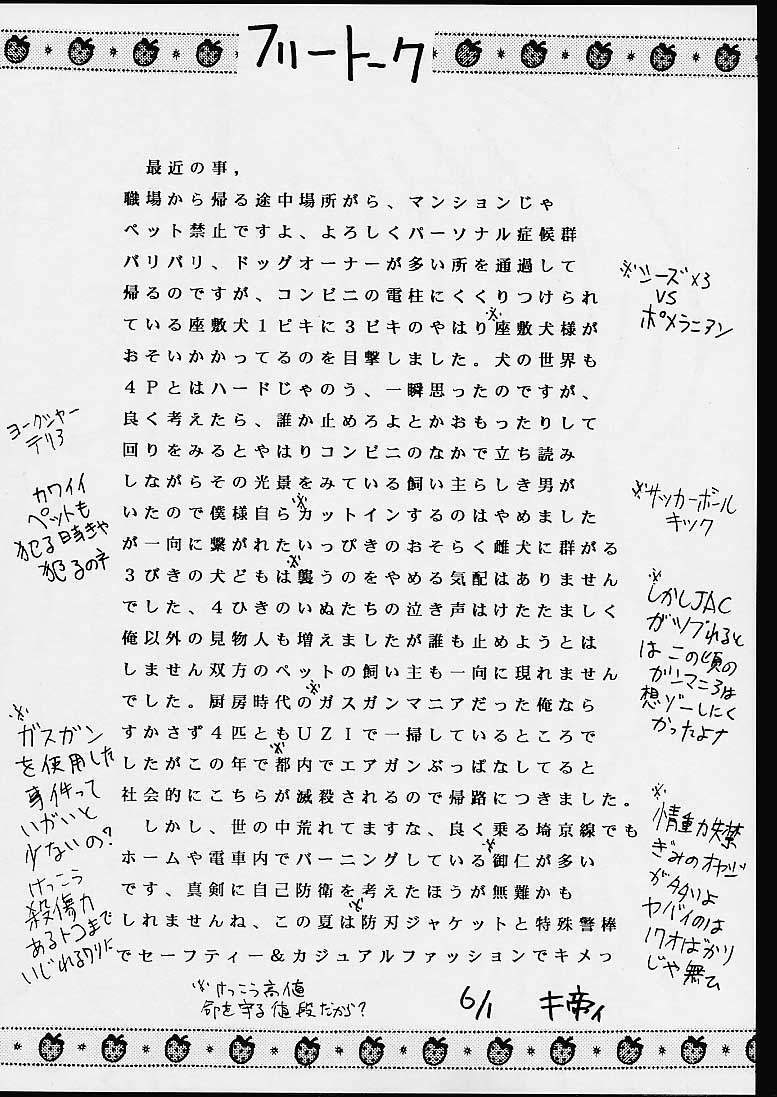 フリートーク
最近の事，
職場から帰る途中場所がら、マンションじゃ
ペット禁止ですよ、よろしくパーソナル症候群
パリパリ、ドッグオーナーが多い所を通過して
帰るのですが、コンビニの電柱にくくりつけられ
ている座敷犬１ピキに３ビキのやはり※座敷犬様が
おそいかかってるのを目撃しました。犬の世界も
４Ｐとはハードじゃのう、一瞬思ったのですが、
良く考えたら、誰か止めろよとかおもったりして
回りをみるとやはりコンビニのなかで立ち読み
しながらその光景をみている飼い主らしき男が
いたので僕様自ら※カットインするのはやめました
が一向に繋がれたいっぴきのおそらく雌犬に群がる
３びきの犬どもは※襲うのをやめる気配はありません
でした、４ひきのいぬたちの泣き声はけたたましく
俺以外の見物人も増えましたが誰も止めようとは
しません双方のペットの飼い主も一向に現れません
でした。厨房時代の※ガスガンマニアだった俺なら
すかさず４匹ともＵＺＩで一掃しているところで
したがこの年で※都内でエアガンぶっぱなしてると
社会的にこちらが滅殺されるので帰路につきました。
しかし、世の中荒れてますな、良く乗る埼京線でも
ホームや電車内でバーニングしている※御仁が多い
です、真剣に自己防衛を考えたほうが無難かも
しれませんね、この夏は※防刃ジャケットと特殊警棒
でセーフティー＆カジュアルファッションでキメっ
※シーズ×3
VS
ポメラニアン
ヨークシャー
テリア
カワイイ
ペットも
犯る時きゃ
犯るのネ
※サッカーボール
キック
※しかしJAC
がツブれると
は この頃の
ガンマニアは
想ゾーしにく
かったよナ
※ガスガン
を使用した
事件って
いがいと
少ないの?
けっこう
殺傷力
あるトコまで
いじれるワリに
※
情動失禁
ぎみのオヤジ
が多いよ
ヤバイのは
17才ばかり
じゃ無い
※けっこう高値
命を守る値段だから?
6/1